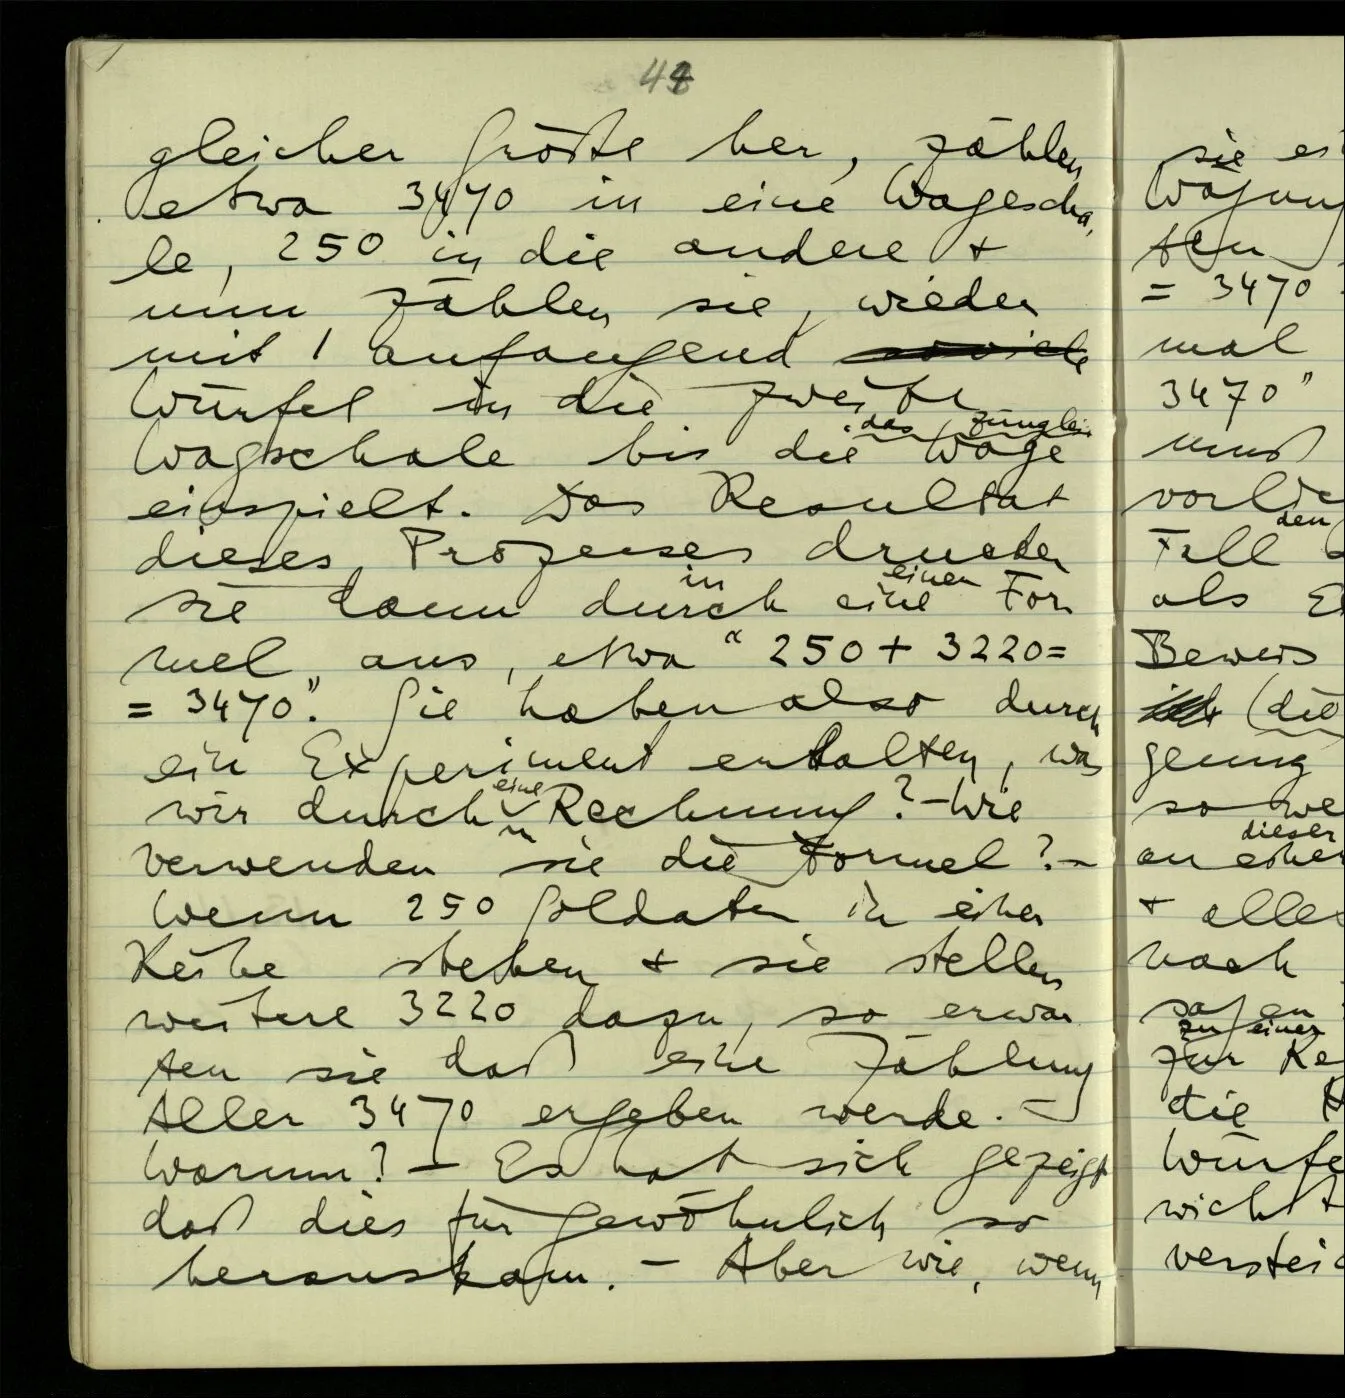 48
gleicher Größe her, zählen
etwa 3470 in eine Wagescha-
le, 250 in die andere +
nun zählen sie, wieder
mit 1 anfangend soviele
Würfel in die zweite
das Zünglein
Wagschale bis die Wage
einspielt. Das Resultat
dieses Prozesses drucken
in einer
sie dann durch eine For
mel aus, etwa "250 + 3220 =
= 3470". Sie haben also durch
ein Experiment erhalten, was
eine
wir durch Rechnung? – Wie
verwenden sie die Formel? –
Wenn 250 Soldaten in einer
Reihe stehen + sie stellen
weitere 3220 dazu, so erwar
ten sie daß eine Zählung
Aller 3470 ergeben werde. –
Warum? – Es hat sich gezeigt
daß dies für gewöhnlich so
herauskam. – Aber wie, wenn
sie
Wägung
ten
= 3470
mal
3470"
muß
den
Fall
als
Beweis
(die
genug
so we
dieser
an einer
+ alles
nach
sagen
zu einer
zur Re
die
Würfe
nicht